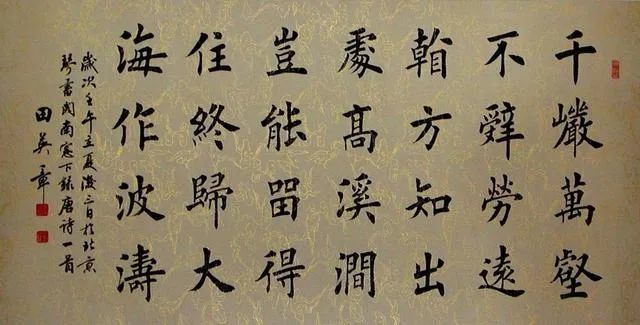 千巖萬壑
不辭勞遠
看方知出
處高溪澗
豈能留得
住終歸大
海作波濤
歲次壬午立夏後三日於北京
琴書閣南窓下錄唐詩一首
田英章